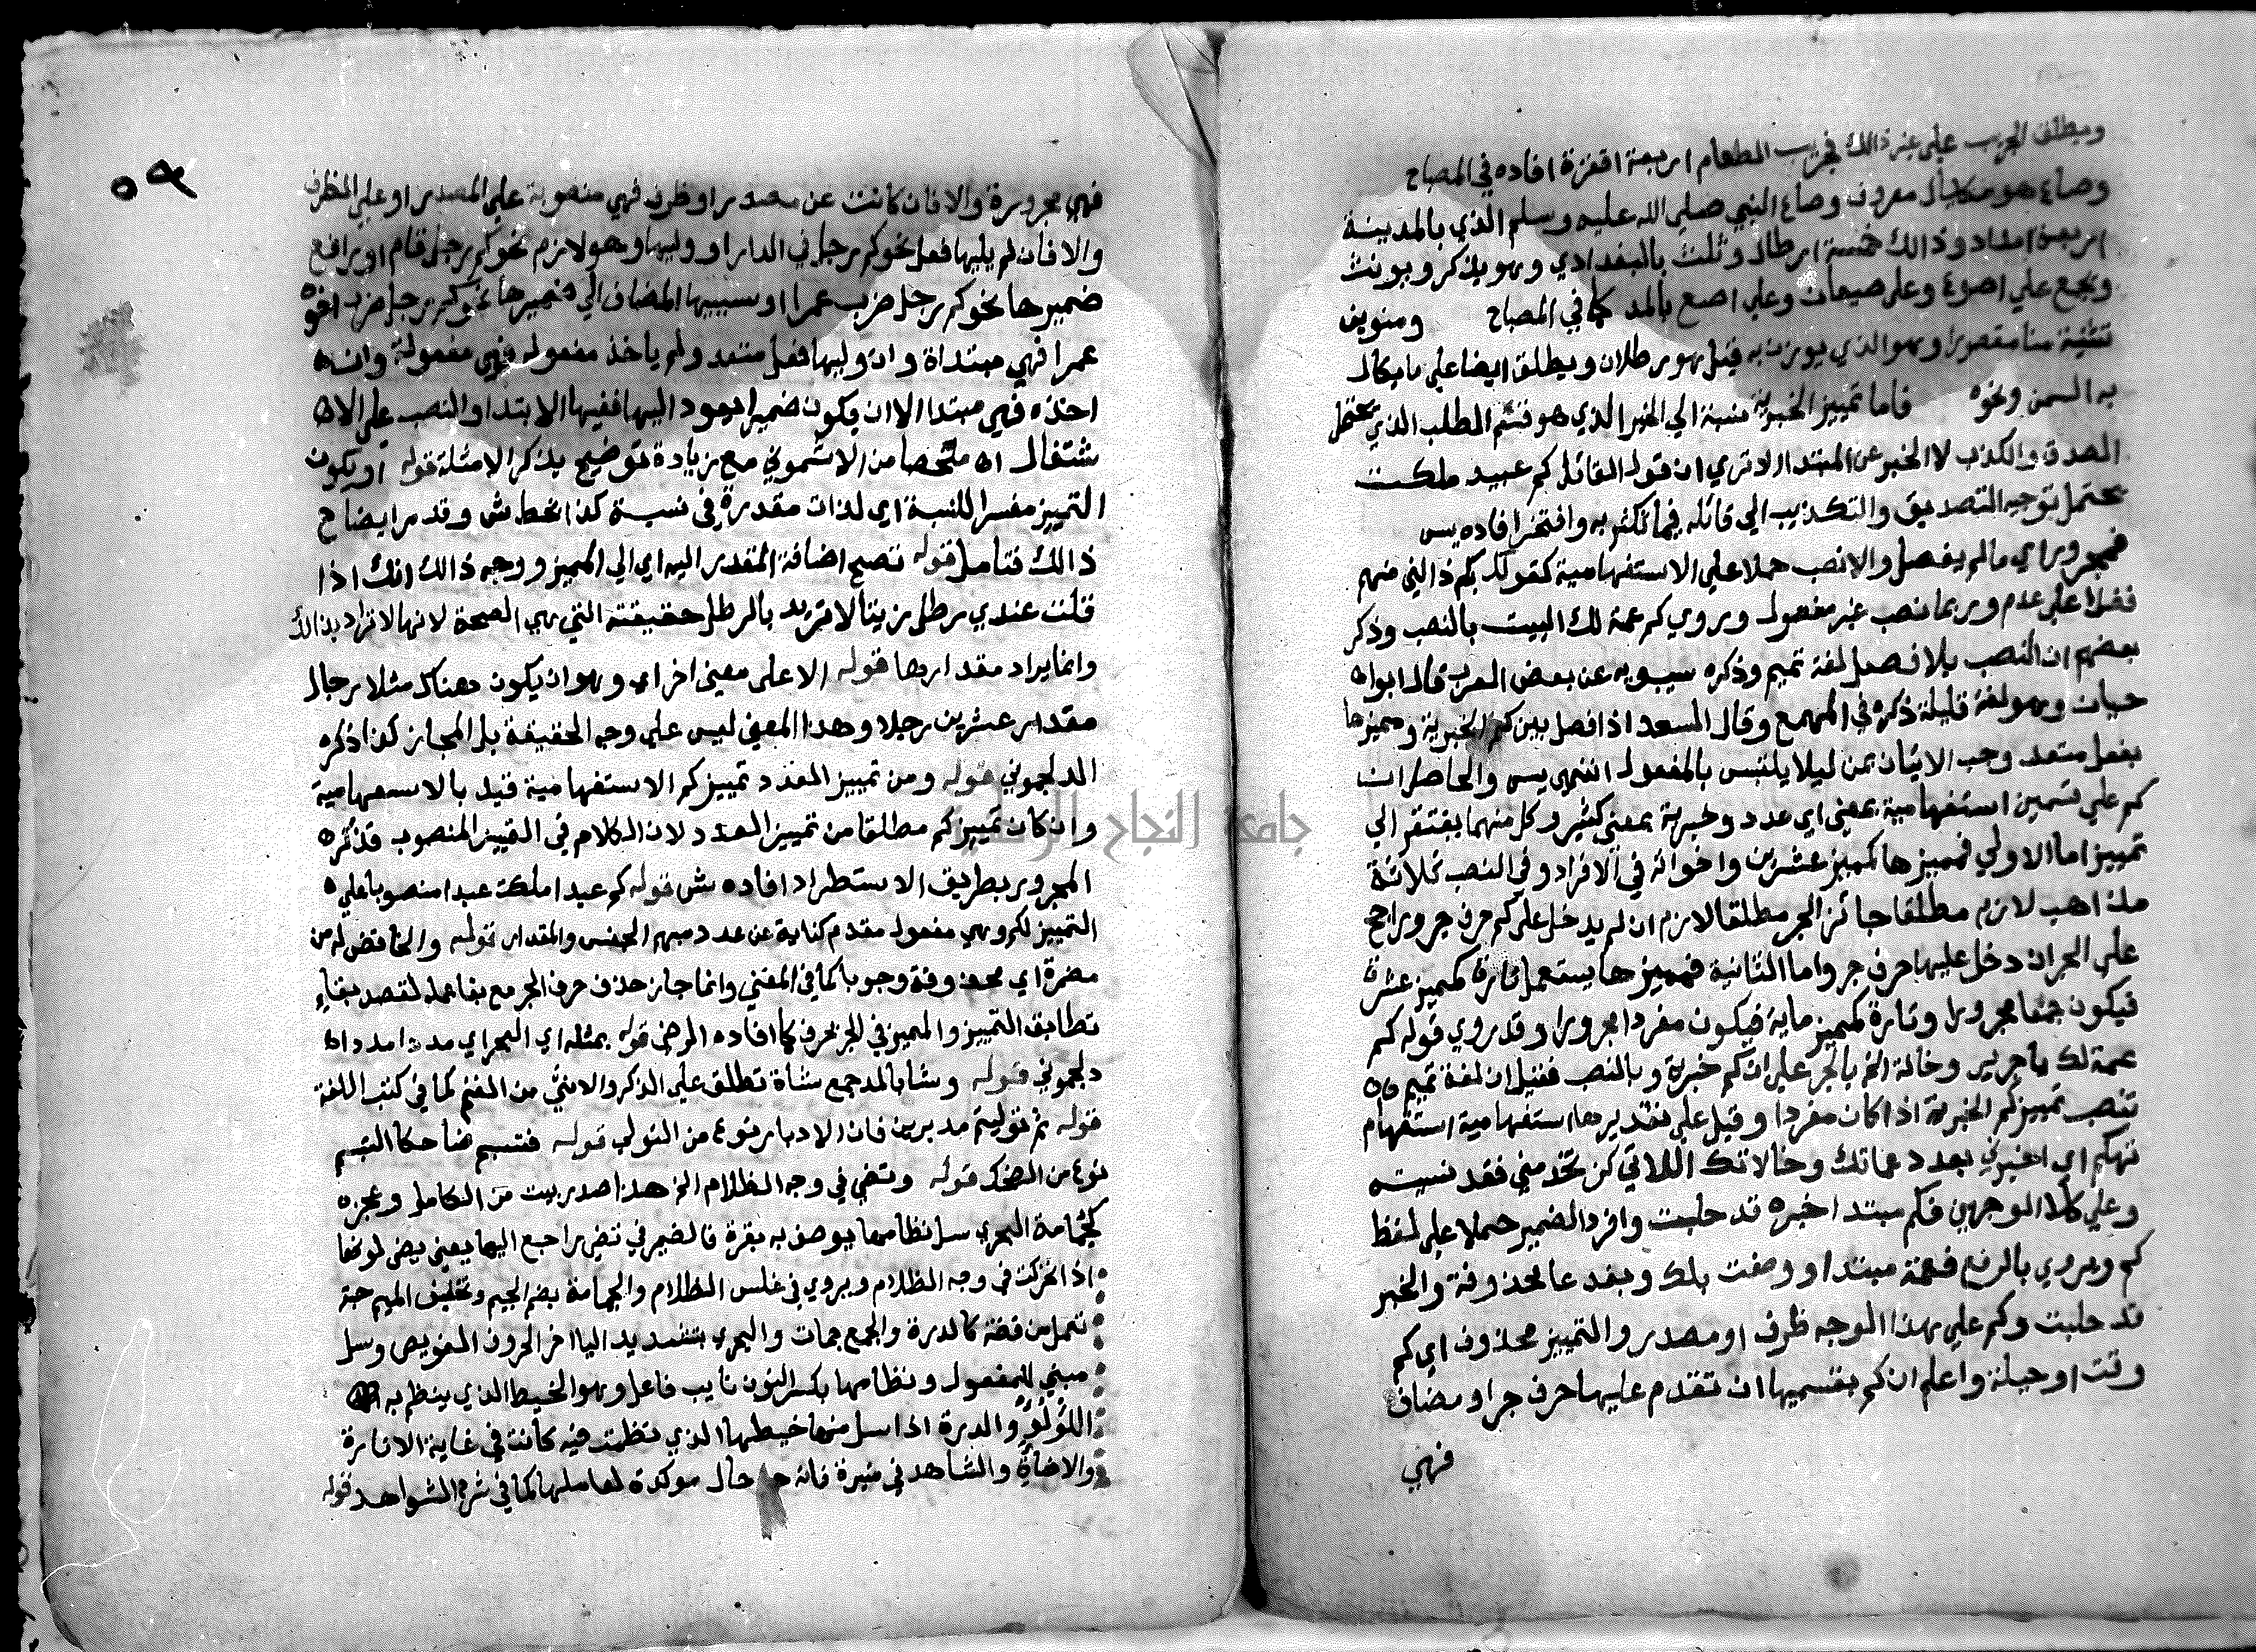 ويطلق الجريب علي غير ذالك فجريب الطعام اربعة اقفزة افاده في المصباح
وصاع هو مكيال معروف وصاع النبي صلي الله عليه وسلم الذي بالمدينة
اربعة امداد وذالك خمسة ارطال وثلث بالبغدادي وهو يذكر ويونث
ويجمع علي اصوع وعلي صيعان وعلي اصع بالمد كما في المصباح ومنوين
تثنية منا مقصورا وهو الذي يوزن به قيل هو رطلان ويطلق ايضا علي ما يكال
به السمن ونحوه فاما تمييز الخبرية نسبة الي الخبر الذي هو قسم المطلب الذي يحتمل
الصدق والكذب لا الخبر عن المبتدا الا تري ان قول القائل كم عبيد ملكت
يحتمل توجيه التصديق والتكذيب الي قائله فيما تكثر به وافتخر افاده يس
فمجرور اي مالم يفصل والا نصب حملا علي الاستفهامية كقولك كم نالني منهم
فضلا علي عدم وربما نصب غير مفصول وروي كم عمة لك البيت بالنصب وذكر
بعضهم ان النصب بلا فصل لغة تميم وذكره سيبويه عن بعض العرب قال ابوا
حيان وهو لغة قليلة ذكره في الهمع وقال السعد اذا فصل بين كم الخبرية ومميزها
بفعل متعد وجب الاتيان بمن ليلا يلتبس بالمفعول انتهي يس والحاصل ان
كم علي قسمين استفهامية بمعني اي عدد وخبرية بمعني كثير وكل منهما يفتقر الي
تمييز اما الاولي فمميزها كمميز عشرين واخواته في الافراد وفي النصب ثلاثة
مذاهب لازم مطلقا جائز الجر مطلقا لازم ان لم يدخل علي كم حرف جر وراجح
علي الجر ان دخل عليها حرف جر واما الثانية فمميزها يستعمل تارة كمميز عشرة
فيكون جمعا مجرورا وتارة كمميز ماية فيكون مفردا مجرورا وقد روي قوله كم
عمة لك يا جرير وخالة الخ بالجر علي ان كم خبرية وبالنصب فقيل ان لغة تميم
تنصب تمييز كم الخبرية اذا كان مفردا وقيل علي تقديرها استفهامية استفهام
تهكم اي اخبرني بعدد عماتك وخالاتك اللاتي كن يخدمني فقد نسيته
وعلي كلا الوجهين فكم مبتدا خبره قد حلبت وافرد الضمير حملا علي لفظ
كم ويروي بالرفع فعمة مبتدا ووصفت بلك وبفدعا محذوفة والخبر
قد حلبت وكم علي هذا الوجه ظرف او مصدر والتمييز محذوف اي كم
وقت او حلبة واعلم ان كم بقسميها ان تقدم عليها حرف جر او مضاف
فهي
٥٩
فهي مجرورة والا فان كانت عن مصدر او ظرف فهي منصوبة علي المصدر او علي الظرف
والا فان لم يليها فعل نحو كم رجل في الدار او وليها وهو لازم نحو كم رجل قام او رافع
ضميرها نحو كم رجل ضرب عمرا او سببيها المضاف الي ضميرها نحو كم رجل ضرب اخوه
عمرا فهي مبتداة وان وليها فعل متعد ولم ياخذ مفعوله فهي مفعولة وان
اخذه فهي مبتدا الا ان يكون ضميرا يعود اليها ففيها الابتدا والنصب علي الا
شتغال اه ملخصا من الاشموني مع زيادة توضيح بذكر الامثلة قوله او يكون
التمييز مفسرا للنسبة اي لذات مقدرة في نسبة كذا بخط ش وقد مر ايضاح
ذالك فتامل قوله تصح اضافة المقدر اليه اي الي المميز ووجه ذالك انك اذا
قلت عندي رطل زيتا لا تريد بالرطل حقيقته التي هي الصحة لانها لا تراد بذالك
وانما يراد مقدارها قوله الا علي معني اخر اي وهو ان يكون هناك مثلا رجال
مقدار عشرين رجلا وهذا المعني ليس علي وجه الحقيقة بل المجاز كذا ذكره
الدلجموني قوله ومن تمييز العدد تمييز كم الاستفهامية قيد بالاستفهامية
وان كان تمييز كم مطلقا من تمييز العدد لان الكلام في التمييز المنصوب فذكره
المجرور بطريق الاستطراد افاده ش قوله كم عبدا ملكت عبدا منصوبا علي
التمييز لكم وهي مفعول مقدم كناية عن عدد مبهم الجنس والمقدار قوله والخافض له من
مضمرة اي محذوفة وجوبا كما في المغني وانما جاز حذف حرف الجر مع بقا عمله لقصد بقاء
تطابق التمييز والمميز في الجر بحرف كما افاده الرضي قوله بمثله اي البحر اي مددا امدد اه
دلجموني قوله وشا بالمد جمع شاة تطلق علي الذكر والانثي من الغنم كما في كتب اللغة
قوله ثم توليتم مدبرين فان الادبار نوع من التولي قوله فتبسم ضاحكا التبسم
نوع من الضحك قوله وتضي في وجه الظلام الخ هذا صدر بيت من الكامل وعجزه
كجمانة البحري سل نظامها يوصف به بقرة فالضمير في تضي راجع اليها يعني يضي لونها
اذا تحركت في وجه الظلام ويروي في غلس الظلام والجمانة بضم الجيم وتخفيف الميم حبة
تعمل من فضة كالدرة والجمع جمانات والبحري بتشديد اليا اخر الحروف الغويص وسل
مبني للمفعول ونظامها بكسر النون نايب فاعل وهو الخيط الذي ينظم به
اللؤلؤ والدرة اذا سل منها خيطها الذي نظمت فيه كانت في غاية الانارة
والاضاة والشاهد في منيرة فانه حال موكدة لعاملها كما في شرح الشواهد قوله
جامعة النجاح الوطنية